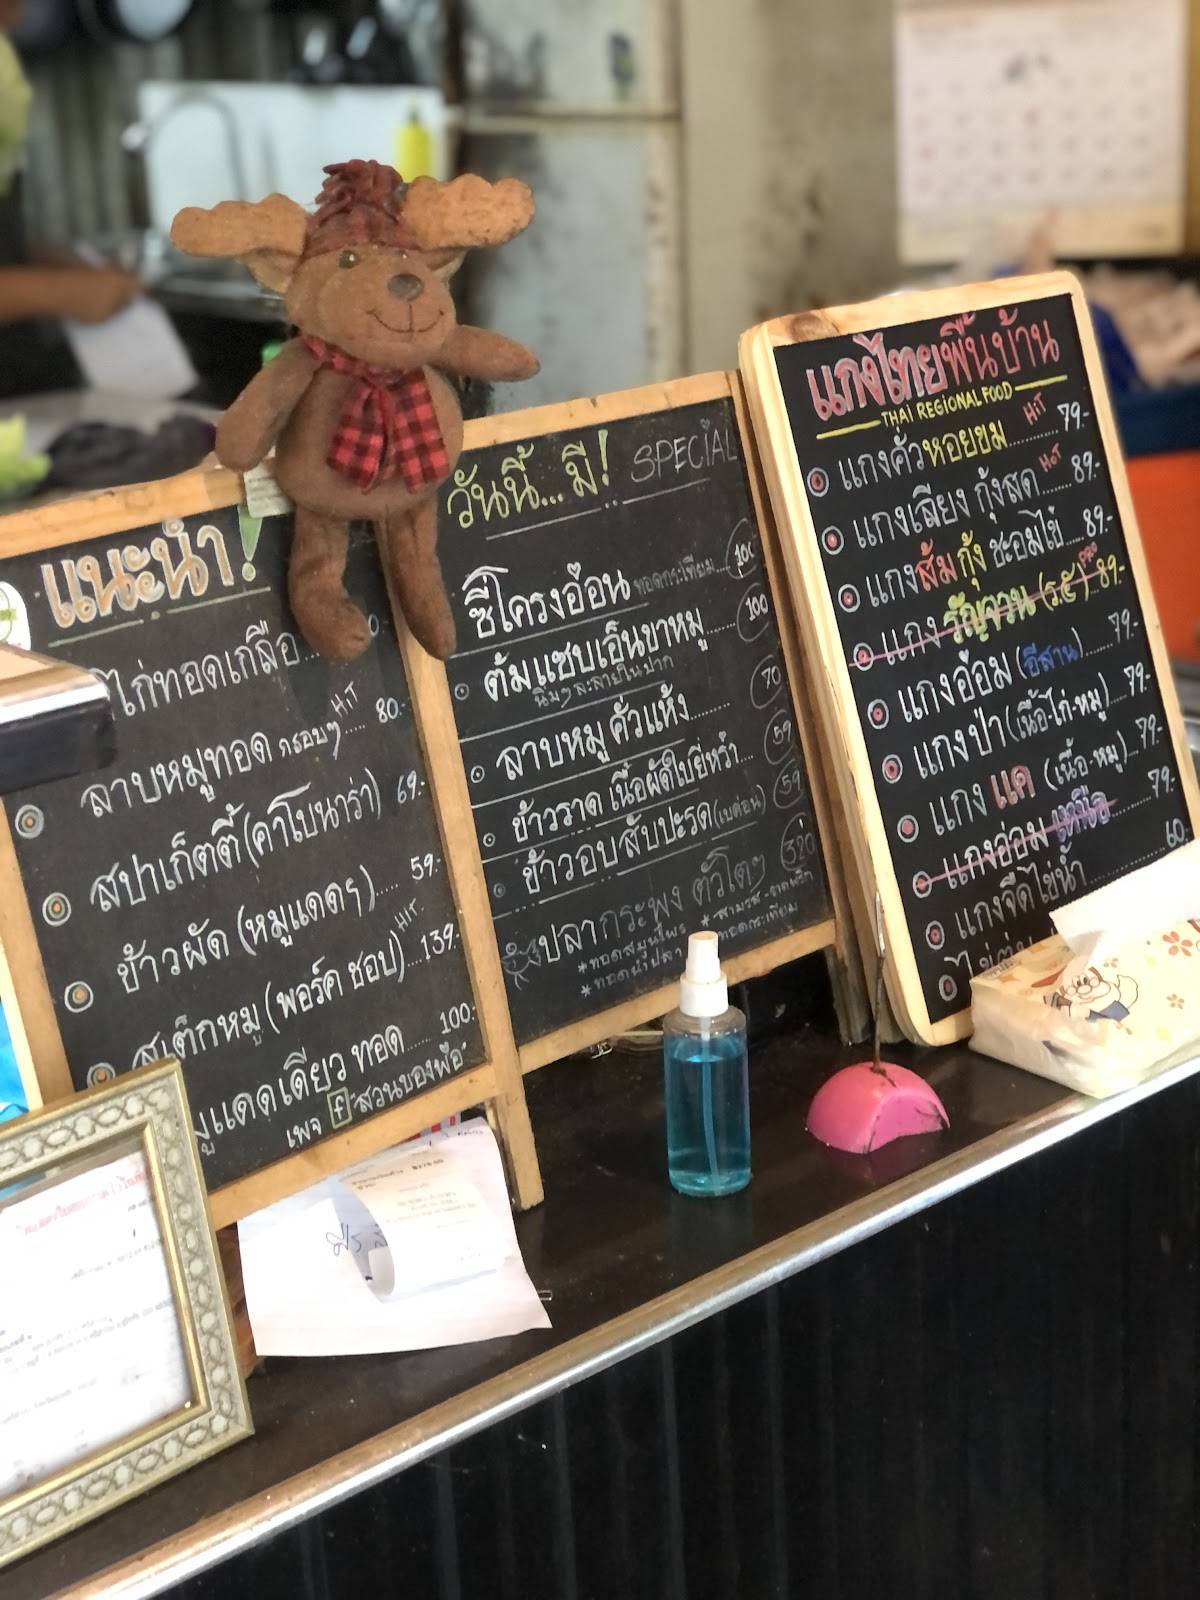 แนะนำ!
ไก่ทอดเกลือ
ลาบหมูทอด กรอบๆ HiT 80.-
สปาเก็ตตี้(คาโบนาร่า) 69.-
ข้าวผัด (หมูแดดๆ)..... 59.-
สเต็กหมู(พอร์ค ชอป)...139.- HIT.
หมูแดดเดียว ทอด 100.-
เพจ f "สวนของพ่อ"
วันนี้... มี! SPECIAL
ซี่โครงอ่อน ทอดกระเทียม...
ต้มแซ่บเอ็นขาหมู 100
นิ่มๆละลายในปาก
ลาบหมู คั่วแห้ง....... 70
ข้าวราด เนื้อผัดใบยี่หร่า.... 59
ข้าวอบสับปะรด(เบค่อน) 59
ปลากะพง ตัวโตๆ 320
*ทอดสมุนไพร * สามรส-ราดพริก
*ทอดน้ำปลา *ทอดกระเทียม
แกงไทยพื้นบ้าน
THAI REGIONAL FOOD
แกงคั่วหอยขม........... HiT 79.-
แกงเลียง กุ้งสด....... HoT 89.-
แกงส้ม กุ้ง ชะอมไข่ ..... 89.-
แกง รัญจวน (ร.๕) PRO 89.-
แกงอ่อม (อีสาน) ...... 79.-
แกงป่า(เนื้อ-ไก่-หมู) 79.-
แกง แค (เนื้อ-หมู)... 79.-
แกงอ่อม เหงือ......... 79.-
แกงจืดไข่น้ำ ........... 60.